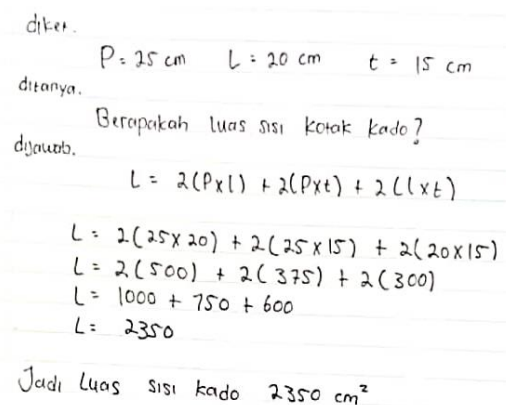 diket.
P = 25 cm L = 20 cm t = 15 cm
ditanya.
Berapakah luas sisi kotak kado?
dijawab.
L = 2(Pxl) + 2(Pxt) + 2(lxt)
L = 2(25x20) + 2(25x15) + 2(20x15)
L = 2(500) + 2(375) + 2(300)
L = 1000 + 750 + 600
L = 2350
Jadi Luas sisi kado 2350 cm²